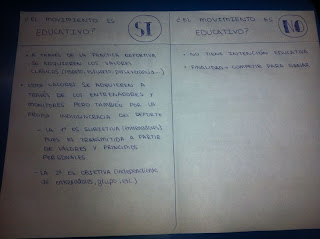 ¿EL MOVIMIENTO ES
EDUCATIVO?
SI
- A TRAVÉS DE LA PRÁCTICA DEPORTIVA
SE ADQUIEREN LOS VALORES
- ESTOS VALORES SE ADQUIEREN A
TRAVÉS DE LOS ENTRENADORES Y
MONITORES PERO TAMBIÉN POR LA
PROPIA IDIOSINCRACIA DEL DEPORTE
- LA 1ª ES SUBJETIVA (entrenadores)
PUES ES TRANSMITIDA A PARTIR
DE VALORES Y PRINCIPIOS
PERSONALES
- LA 2ª ES OBJETIVA (independiente
de entrenadores, grupo, etc.)
¿EL MOVIMIENTO ES
EDUCATIVO?
NO
- NO TIENE INTENCIÓN EDUCATIVA
- FINALIDAD = COMPETIR PARA GANAR